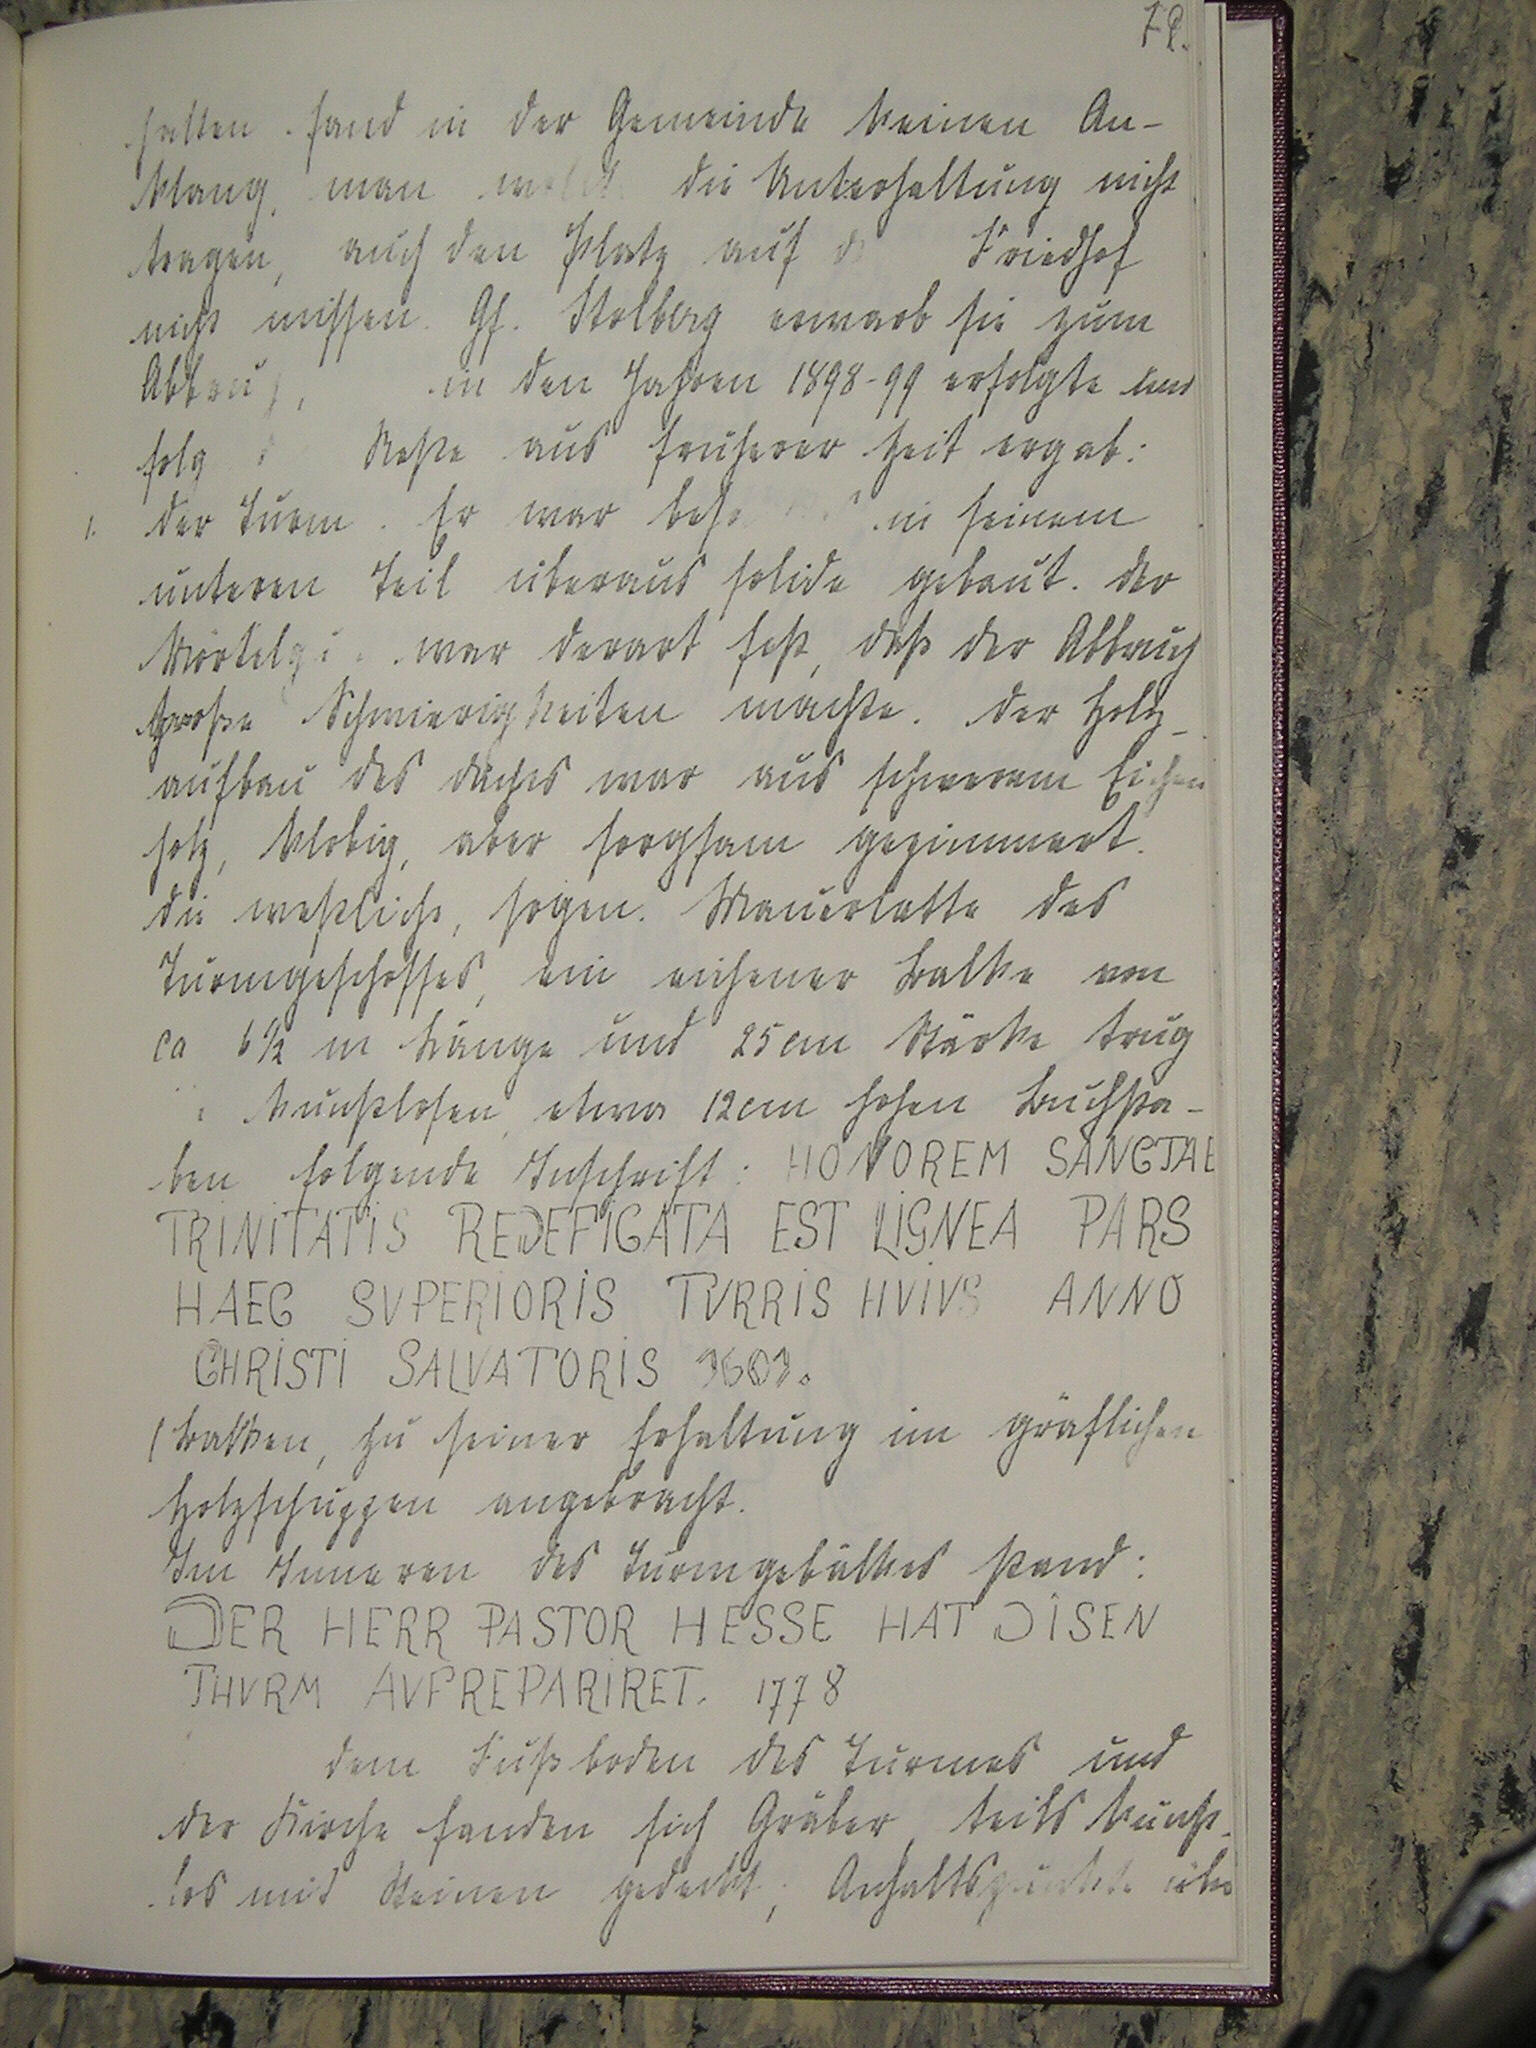 72.
halten. fand in der Gemeinde keinen An-
klang, man wollte die Unterhaltung nicht
tragen, auch den Platz auf d Friedhof
nicht missen. Gf. Stolberg erwarb sie zum
Abbruch, in den Jahren 1898-99 erfolgte und
folg Reste aus früherer Zeit ergab:
1. der Turm. Er war in seinem
unteren Teil überaus solide gebaut. der
war derart fest, daß der Abbruch
große Schwierigkeiten machte. der Holz-
aufbau des daches war aus schwerem Eichen
holz, klobig, aber sorgsam gezimmert.
die westliche, sogen. Mauerlatte des
Turmgeschosses, ein eichener Balke von
ca 6½ m Länge und 25 cm Stärke trug
kunstlosen, etwa 12 cm hohen Buchsta-
ben folgende Inschrift: HONOREM SANCTAE
TRINITATIS REDEFICATA EST LIGNEA PARS
HAEC SVPERIORIS TVRRIS HVIVS ANNO
CHRISTI SALVATORIS 1601.
(Balken, zu seiner Erhaltung im gräflichen
Holzschuppen angebracht.
Im Inneren des Turmgebälkes stand:
DER HERR PASTOR HESSE HAT DISEN
THVRM AVFREPARIRET. 1778
dem Fußboden des Turmes und
der Kirche fanden sich Gräber, teils kunst-
los mit Steinen gedeckt; Anhaltspunkte über